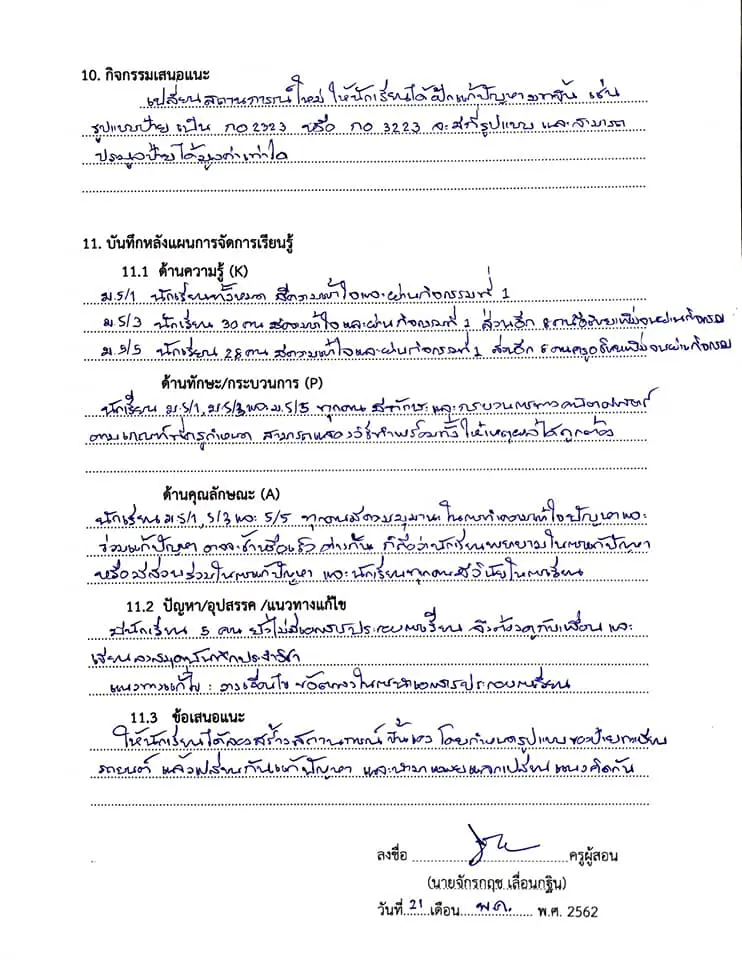 10. กิจกรรมเสนอแนะ
เปลี่ยนสถานการณ์ใหม่ ให้นักเรียนได้ฝึกแก้ปัญหามากขึ้น เช่น
รูปแบบป้าย เป็น กอ 2323 หรือ กอ 3223 จะมีกี่รูปแบบ และสามารถ
ประมูลป้ายได้มูลค่าเท่าใด
11. บันทึกหลังแผนการจัดการเรียนรู้
11.1 ด้านความรู้ (K)
ม.5/1 นักเรียนทั้งหมด มีความเข้าใจและผ่านกิจกรรมที่ 1
ม.5/3 นักเรียน 30 คน มีความเข้าใจและผ่านกิจกรรมที่ 1 ส่วนอีก 8 คน อธิบายเพิ่มจนผ่านกิจกรรม
ม.5/5 นักเรียน 28 คน มีความเข้าใจและผ่านกิจกรรมที่ 1 ส่วนอีก 6 คน ครูอธิบายเพิ่มจนผ่านกิจกรรม
ด้านทักษะ/กระบวนการ (P)
นักเรียน ม.5/1, ม.5/3 และ ม.5/5 ทุกคน มีทักษะและกระบวนการทางคณิตศาสตร์
ตามเกณฑ์ที่ครูกำหนด สามารถแสดงวิธีทำพร้อมทั้งให้เหตุผลได้ถูกต้อง
ด้านคุณลักษณะ (A)
นักเรียน ม.5/1, 5/3 และ 5/5 ทุกคนมีความมุมานะในการทำความเข้าใจปัญหาและ
ร่วมแก้ปัญหา อาจจะช้าหรือเร็วต่างกัน ก็ถือว่านักเรียนพยายามในการแก้ปัญหา
หรือมีส่วนร่วมในการแก้ปัญหา และนักเรียนทุกคนมีวินัยในการเรียน
11.2 ปัญหา/อุปสรรค /แนวทางแก้ไข
มีนักเรียน 5 คน ยังไม่มีเอกสารประกอบการเรียน จึงต้องดูกับเพื่อน และ
เขียนลงสมุดบันทึกประจำวิชา
แนวทางแก้ไข : วางเงื่อนไข ข้อตกลงในการนำเอกสารประกอบการเรียน
11.3 ข้อเสนอแนะ
ให้นักเรียนได้ลองสร้างสถานการณ์ขึ้นเอง โดยกำหนดรูปแบบของป้ายทะเบียน
รถยนต์ แล้วเปลี่ยนกันแก้ปัญหา และนำมาแลกเปลี่ยนแนวคิดกัน
ลงชื่อ ครูผู้สอน
(นายจักรกฤช เลื่อนกฐิน)
วันที่ 21 เดือน พ.ค. พ.ศ. 2562